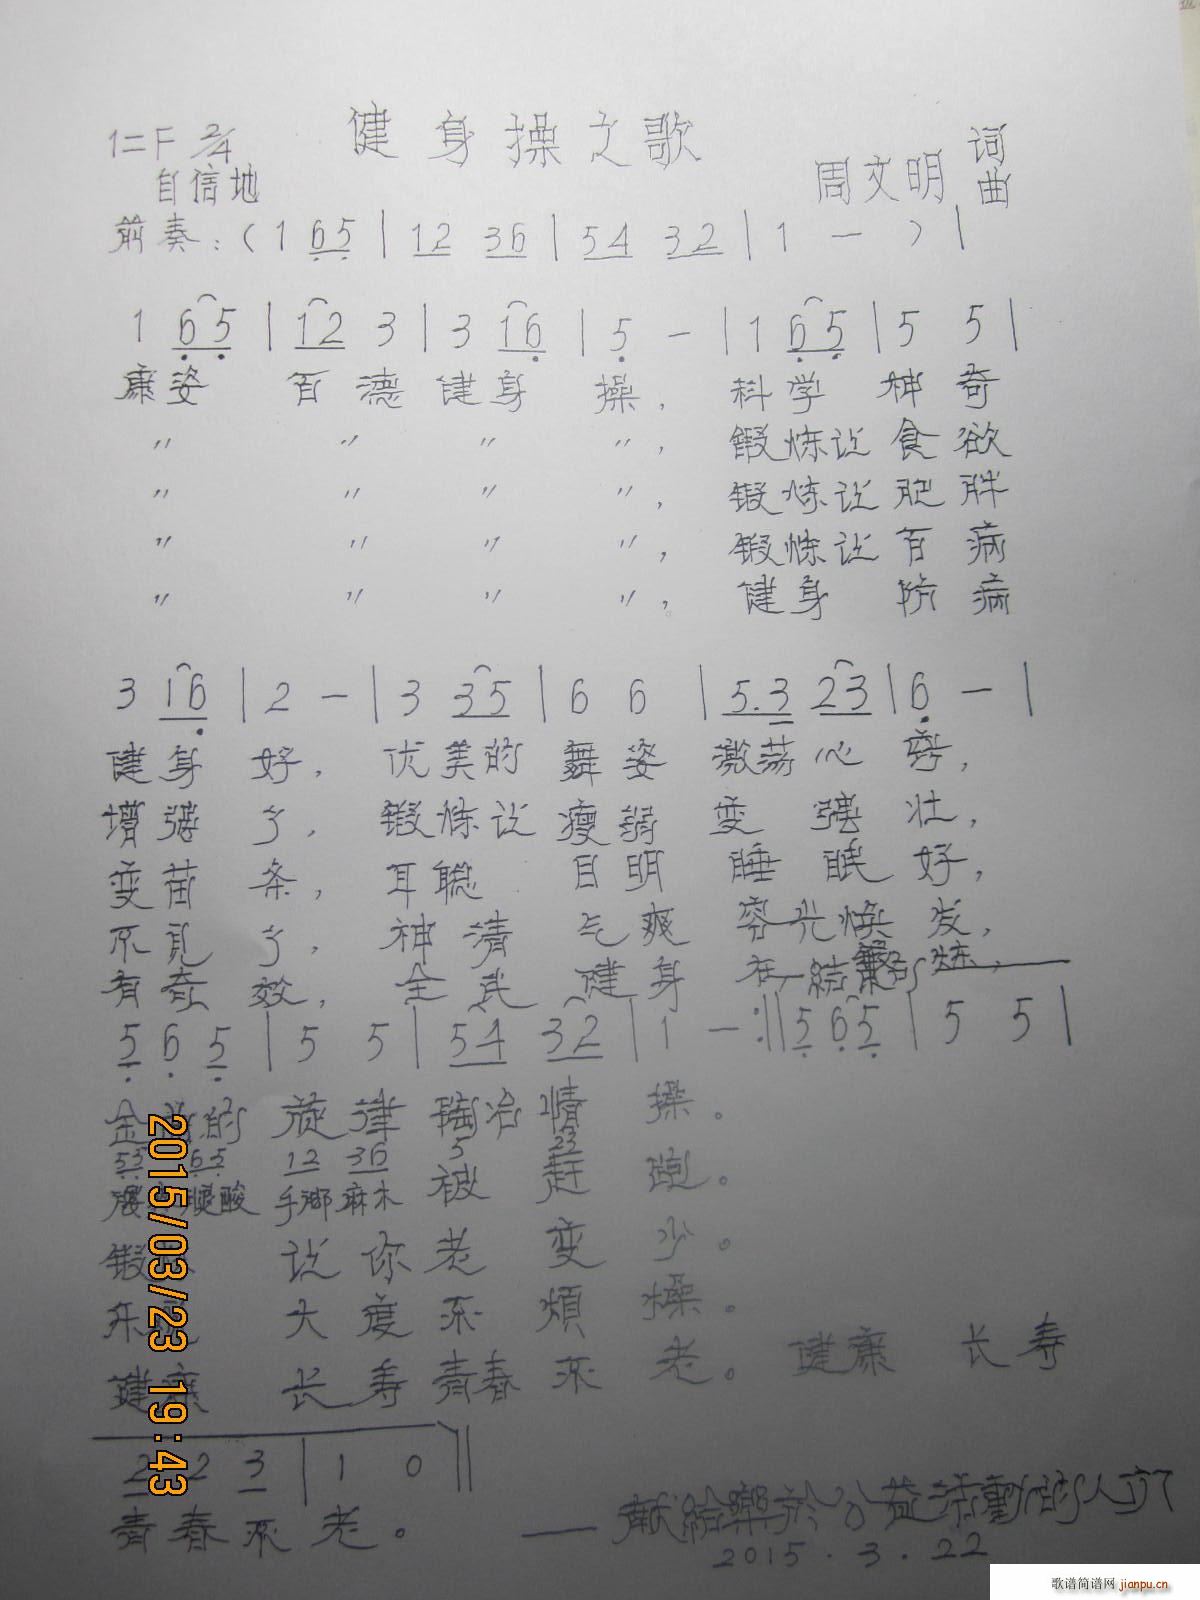 健身操之歌
1=F 2/4
自信地
周文明 词曲
前奏:(1 65 | 12 36 | 54 32 | 1 — ) |
1 65 | 12 3 | 3 16 | 5 — | 1 65 | 5 5 |
康姿 百德健身操, 科学 神奇
〃 〃 〃 〃, 锻炼让食欲
〃 〃 〃 〃, 锻炼让肥胖
〃 〃 〃 〃, 锻炼让百病
〃 〃 〃 〃, 健身 防病
3 16 | 2 — | 3 35 | 6 6 | 5.3 23 | 6 — |
健身 好, 优美的 舞姿 激荡心
增强 了, 锻炼让 瘦弱 变 强 壮,
变苗 条, 耳聪 目明 睡 眠 好,
不见 了, 神清 气爽 容光焕 发,
有奇 效, 全民 健身 在
5 6 5 | 5 5 | 54 32 | 1 — :‖ 5 6 5 | 5 5 |
的 旋律 陶冶情 操。
12 36 5 23
腿酸 手脚麻木 被 赶 跑。
锻 让你老 变 少。
大度不 烦 燥。
健康 长寿青春 不 老。 健康 长寿
2 2 3 | 1 0 ‖
青春不 老。
——献给乐于公益活动的人们
2015.3.22
2015/03/23 19:43
歌谱简谱网 jianpu.cn